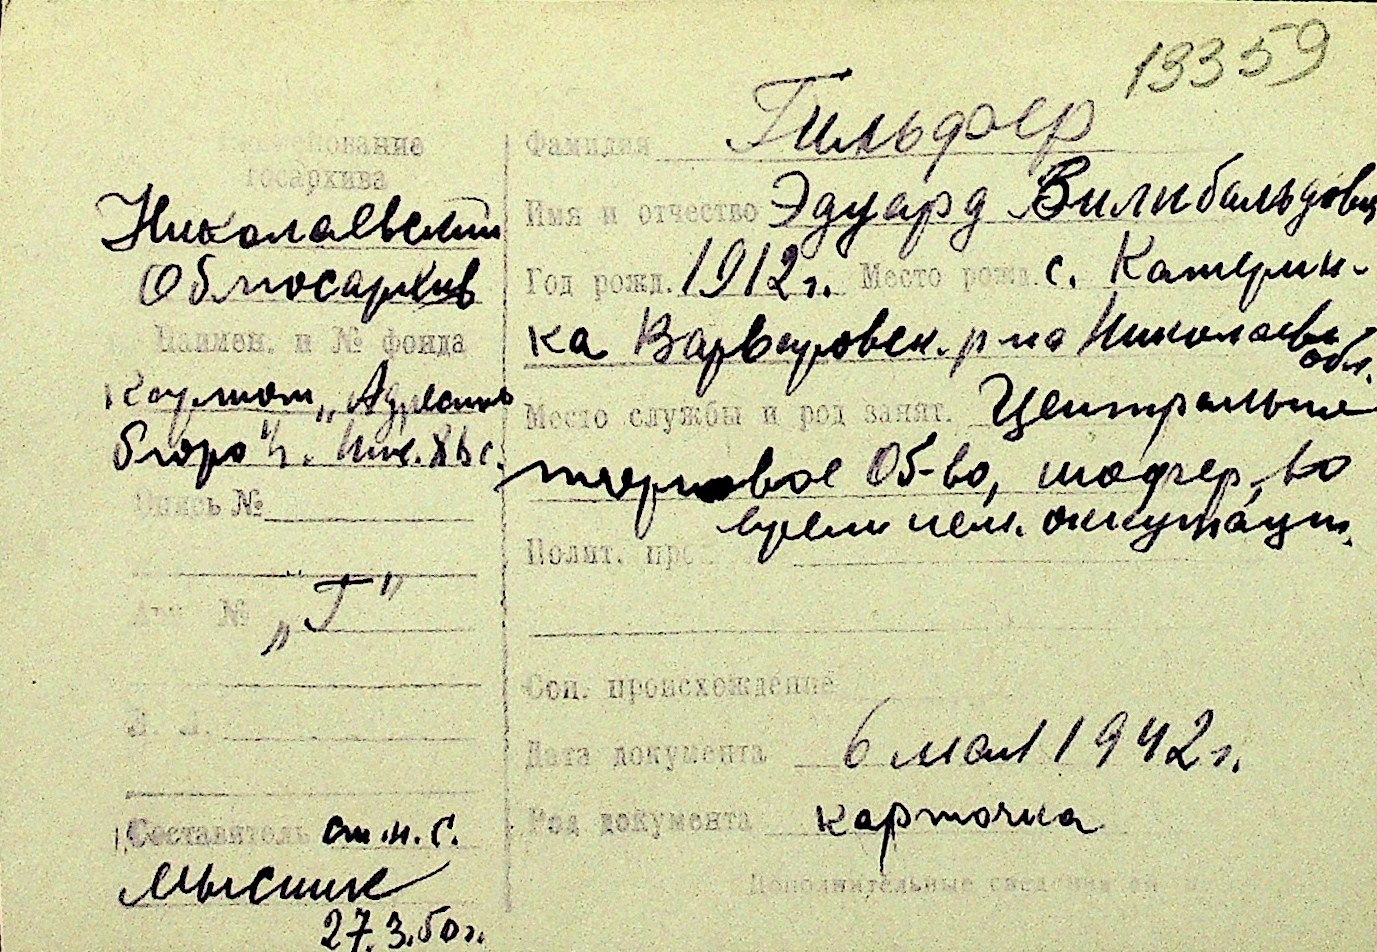 13359
Фамилия Гильфер
Имя и отчество Эдуард Вилибальдович
Год рожд. 1912 г. Место рожд. с. Катерин-
ка Варваровск. р-на Николаевск.
обл.
Место службы и род занят. Центральное
торговое Об-во, шофер, во
время нем. оккупации.
Полит.
Соц. происхождение
Дата документа 6 мая 1942 г.
Род документа карточка
Дополнительные
госархива
Николаевский
Облгосархив
Наимен. и № фонда
"Адресное
бюро".
Опись №
№ „Г”
Составитель ст. н. с.
Мысник
27.3.50 г.